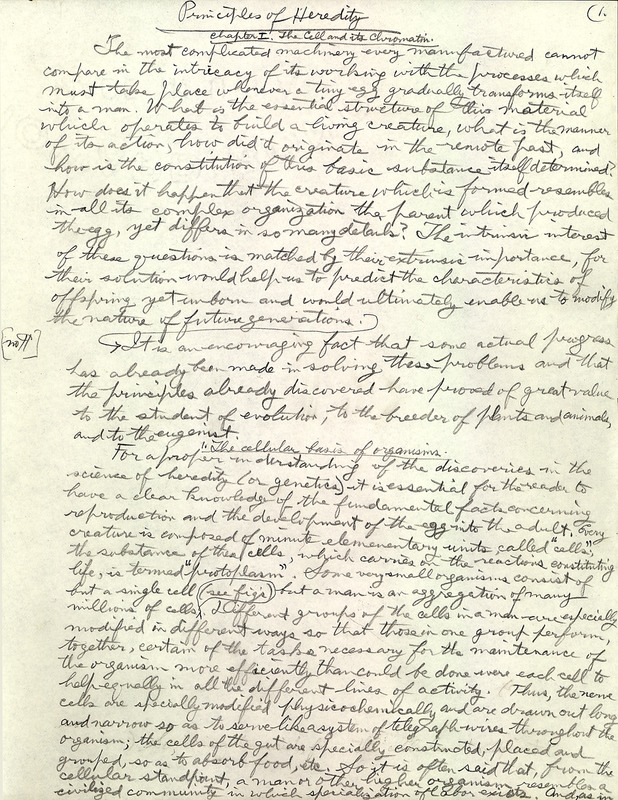 Principles of Heredity
(1.
Chapter I. The Cell and its Chromatin.
"The most complicated machinery every manufactured cannot
compare in the intricacy of its working with the processes which
must take place whenever a tiny egg gradually transforms itself
into a man. What is the essential structure of this material
which operates to build a living creature, what is the manner
of its action, how did it originate in the remote past, and
how is the constitution of this basic substance itself determined?
How does it happen that the creature which is formed resembles
in all its complex organization the parent which produced
the egg, yet differs in so many details? The intrinsic interest
of these questions is matched by their extrinsic importance, for
their solution would help us to predict the characteristics of
offspring yet unborn and would ultimately enable us to modify
the nature of future generations.
[no ¶] It is an encouraging fact that some actual progress
has already been made in solving these problems and that
the principles already discovered have proved of great value
to the student of evolution, to the breeder of plants and animals,
and to the eugenist.
"The cellular basis of organisms.
For a proper understanding of the discoveries in the
science of heredity (or genetics) it is essential for the reader to
have a clear knowledge of the fundamental facts concerning
reproduction and the development of the egg into the adult. Every
creature is composed of minute elementary units called "cells";
the substance of these cells, which carries on the reactions constituting
life, is termed "protoplasm". Some very small organisms consist of
but a single cell (see figs) but a man is an aggregation of many
millions of cells. Different groups of the cells in a man are especially
modified in different ways so that those in one group perform,
together, certain of the tasks necessary for the maintenance of
the organism more efficiently than could be done were each cell to
help equally in all the different lines of activity. Thus, the nerve
cells are specially modified physicochemically and are drawn out long
and narrow so as to serve like a system of telegraph-wires throughout the
organism; the cells of the gut are specially constructed, placed and
grouped, so as to absorb food, etc. So it is often said that, from the
cellular standpoint, a man or other higher organism resembles a
civilized community in which specialization of labor exists. And, as in